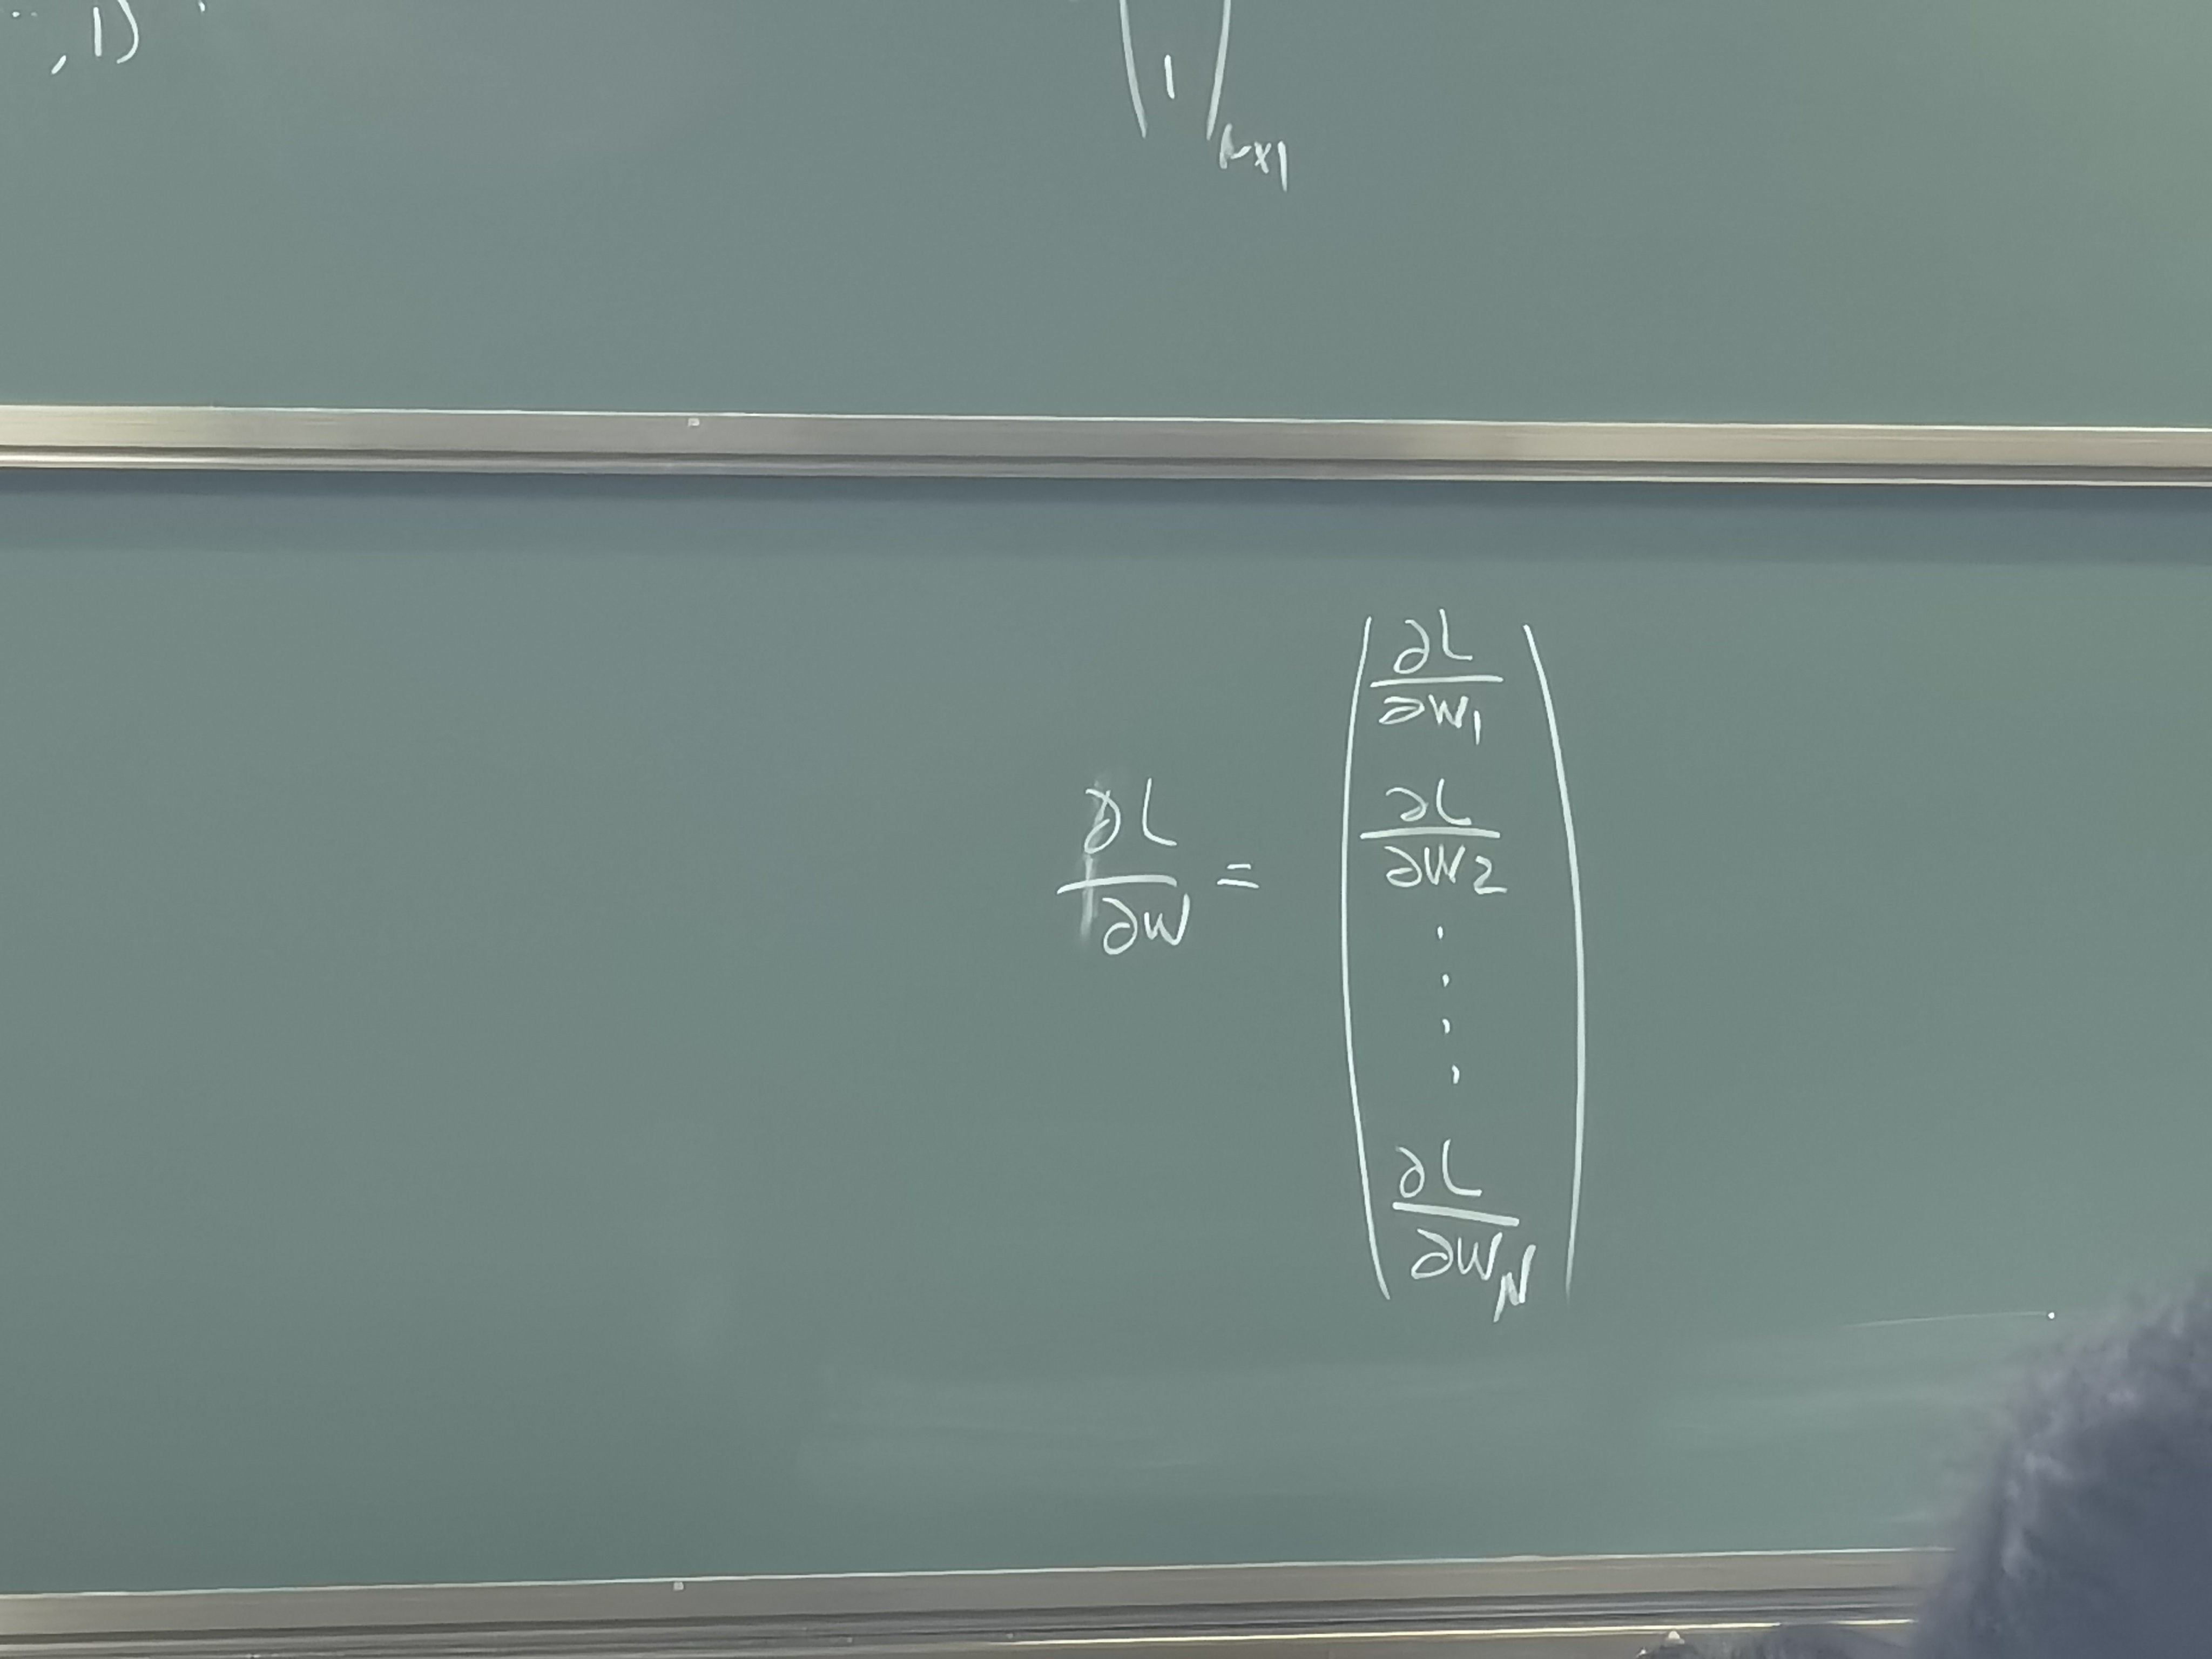 .. , 1)
( 1 )
∂L/∂W = ( ∂L/∂W₁
∂L/∂W₂
.
.
.
.
∂L/∂W_N )